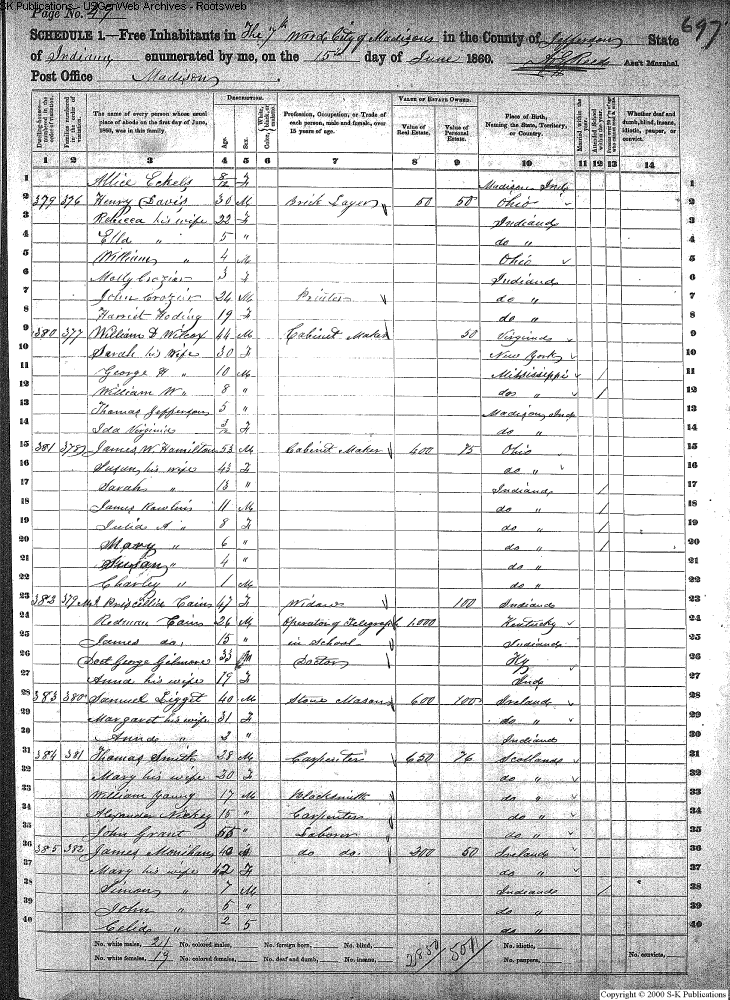 S-K Publications - USGenWeb Archives - Rootsweb
Page No. 47
697
SCHEDULE 1.—Free Inhabitants in The 7th Ward City of Madison in the County of Jefferson State
of Indiana enumerated by me, on the 15th day of June 1860. Ass't Marshal.
Post Office Madison
Dwelling-houses—numbered in the order of visitation. Families numbered in the order of visitation. The name of every person whose usual place of abode on the first day of June, 1860, was in this family. DESCRIPTION. Age. Sex. Color, White, black, or mulatto. Profession, Occupation, or Trade of each person, male and female, over 15 years of age. VALUE OF ESTATE OWNED. Value of Real Estate. Value of Personal Estate. Place of Birth, Naming the State, Territory, or Country. Married within the year. Attended School within the year. Whether deaf and dumb, blind, insane, idiotic, pauper, or convict.
1 2 3 4 5 6 7 8 9 10 11 12 13 14
1 Allice Eckels 8/12 F Madison Ind 1
2 379 376 Henry Davis 30 M Brick Layer 50 50 Ohio 2
3 Rebecca his wife 22 F Indiana 3
4 Ella " 5 " do " 4
5 William " 4 M Ohio 5
6 Molly Crozier 3 F Indiana 6
7 John Crozier 26 M Printer do " 7
8 Harriet Hoding 19 F do " 8
9 380 377 William D Wilcox 44 M Cabinet Maker 50 Virginia 9
10 Sarah his Wife 30 F New York 10
11 George H " 10 M Mississippi / 11
12 William W " 8 " do " / 12
13 Thomas Jefferson 5 " Madison, Ind 13
14 Ida Virginia F do " 14
15 381 378 James W Hamilton 53 M Cabinet Maker 600 75 Ohio 15
16 Susan, his wife 43 F do " 16
17 Sarah " 13 " Indiana / 17
18 James Rawlins 11 M do " / 18
19 Julia A " 8 F do " / 19
20 Mary " 6 " do " / 20
21 Susan " 4 " do " 21
22 Charley " 1 M do " 22
23 382 379 Priscellia Cains 47 F Widow 100 Indiana 23
24 Redman Cains 26 M Operator of Telegraph 1.000 Kentucky 24
25 James do. 15 " in School Indiana 25
26 Doct George Gilmore 33 M Doctor Ky 26
27 Anna his wife 19 F Ind 27
28 383 380 Samuel Ligget 40 M Stone Mason 600 100 Ireland 28
29 Margaret his wife 31 F do " 29
30 Anna " 3 " Indiana 30
31 384 381 Thomas Smith 28 M Carpenter 650 76 Scotland 31
32 Mary his wife 30 F do " 32
33 William Young 17 M Blacksmith do " 33
34 Alexander 15 " Carpenter do " 34
35 John Grant 55 " Laborer do " 35
36 385 382 James Monihan 40 M do do. 300 50 Ireland 36
37 Mary his wife 42 F do " 37
38 Simon " 7 M Indiana / 38
39 John " 5 " do " 39
40 Celia " 2 do " 40
No. white males, 21 No. colored males, No. foreign born, No. blind, 2850 501 No. idiotic, No. convicts,
No. white females, 19 No. colored females, No. deaf and dumb, No. insane, No. paupers,
Copyright © 2000 S-K Publications